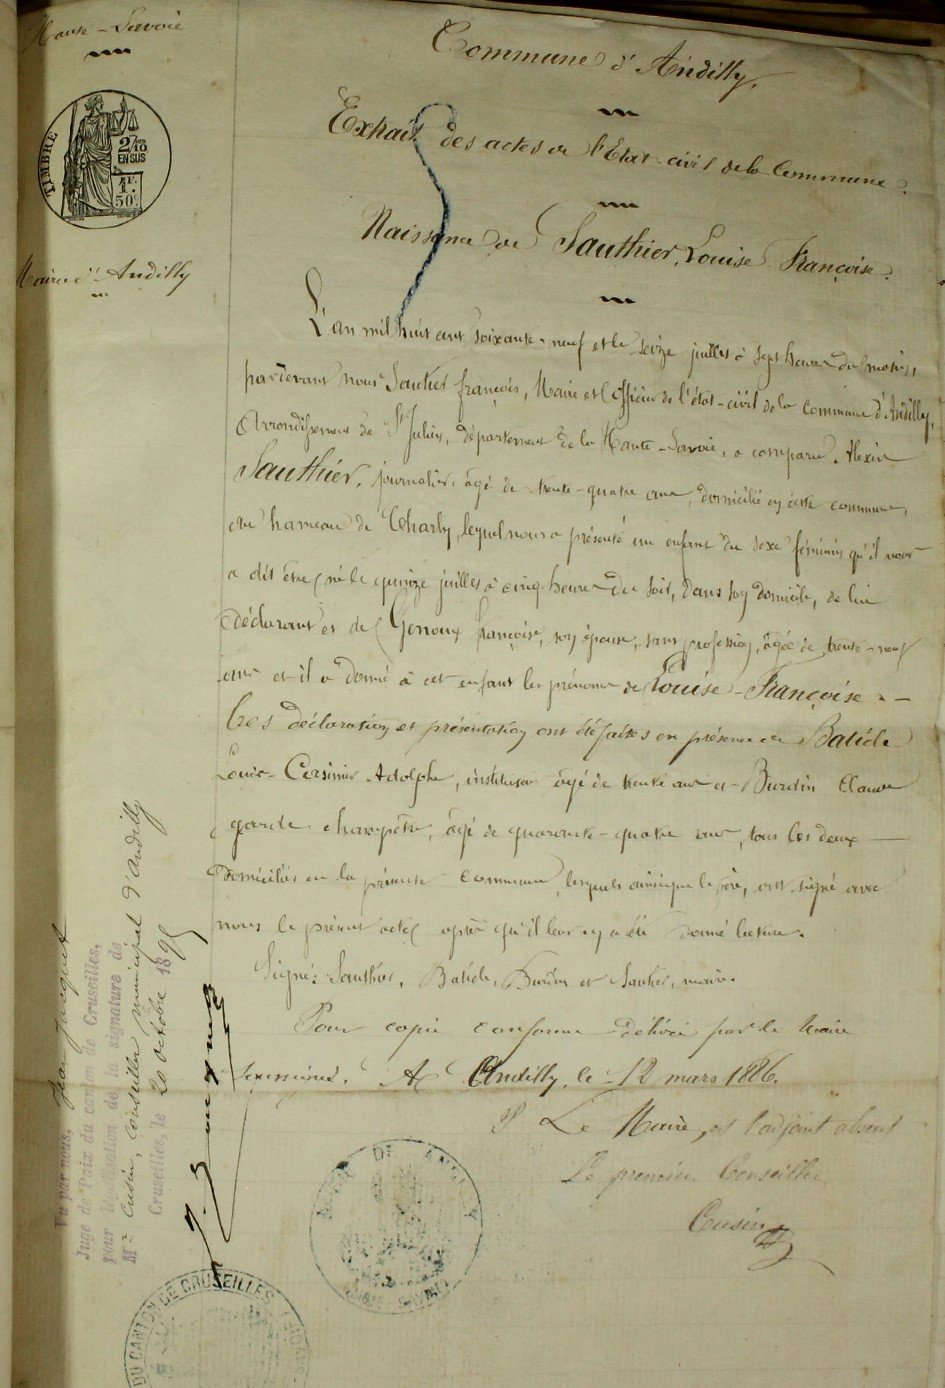 Haute-Savoie
TIMBRE
2/10
EN SUS
1F.
50c
Mairie d'Andilly
Commune d'Andilly.
Extrait des actes de l'Etat-civil de la Commune.
Naissance de Sauthier, Louise Françoise.
L'an mil huit cent soixante-neuf et le seize juillet à sept heures du matin,
pardevant nous Sautier françois, Maire et Officier de l'état-civil de la commune d'Andilly,
Arrondissement de St Julien, département de la Haute-Savoie, a comparu Alexis
Sauthier, journalier, âgé de trente-quatre ans, domicilié en cette commune,
au hameau de Charly, lequel nous a présenté un enfant du sexe féminin qu'il nous
a dit être né le quinze juillet à cinq heures du soir, dans son domicile, de lui
déclarant et de Genoux françoise, son épouse, sans profession, âgée de trente-neuf
ans et il a donné à cet enfant les prénoms de Louise-Françoise. –
Ces déclaration et présentation ont été faites en présence de
Louis-Casimir Adolphe, instituteur âgé de trente ans et Burdin Claude
garde champêtre, âgé de quarante-quatre ans, tous les deux
domiciliés en la présente commune, lesquels ainsi que le père, ont signé avec
nous le présent acte après qu'il leur en a été donné lecture.
Signé: Sauthier, Burdin et Sautier, maire.
Pour copie conforme délivré par le Maire
soussigné. A Andilly, le 12 mars 1886.
P Le Maire, et l'adjoint absent
Le premier Conseiller
Cusin
MAIRIE DE ANDILLY
Vu par nous, Jean Jacquet
Juge de Paix du canton de Cruseilles,
pour légalisation de la signature de
Mr Cusin, conseiller municipal d'Andilly
Cruseilles, le 20 octobre 1895
DU CANTON DE CRUSEILLES